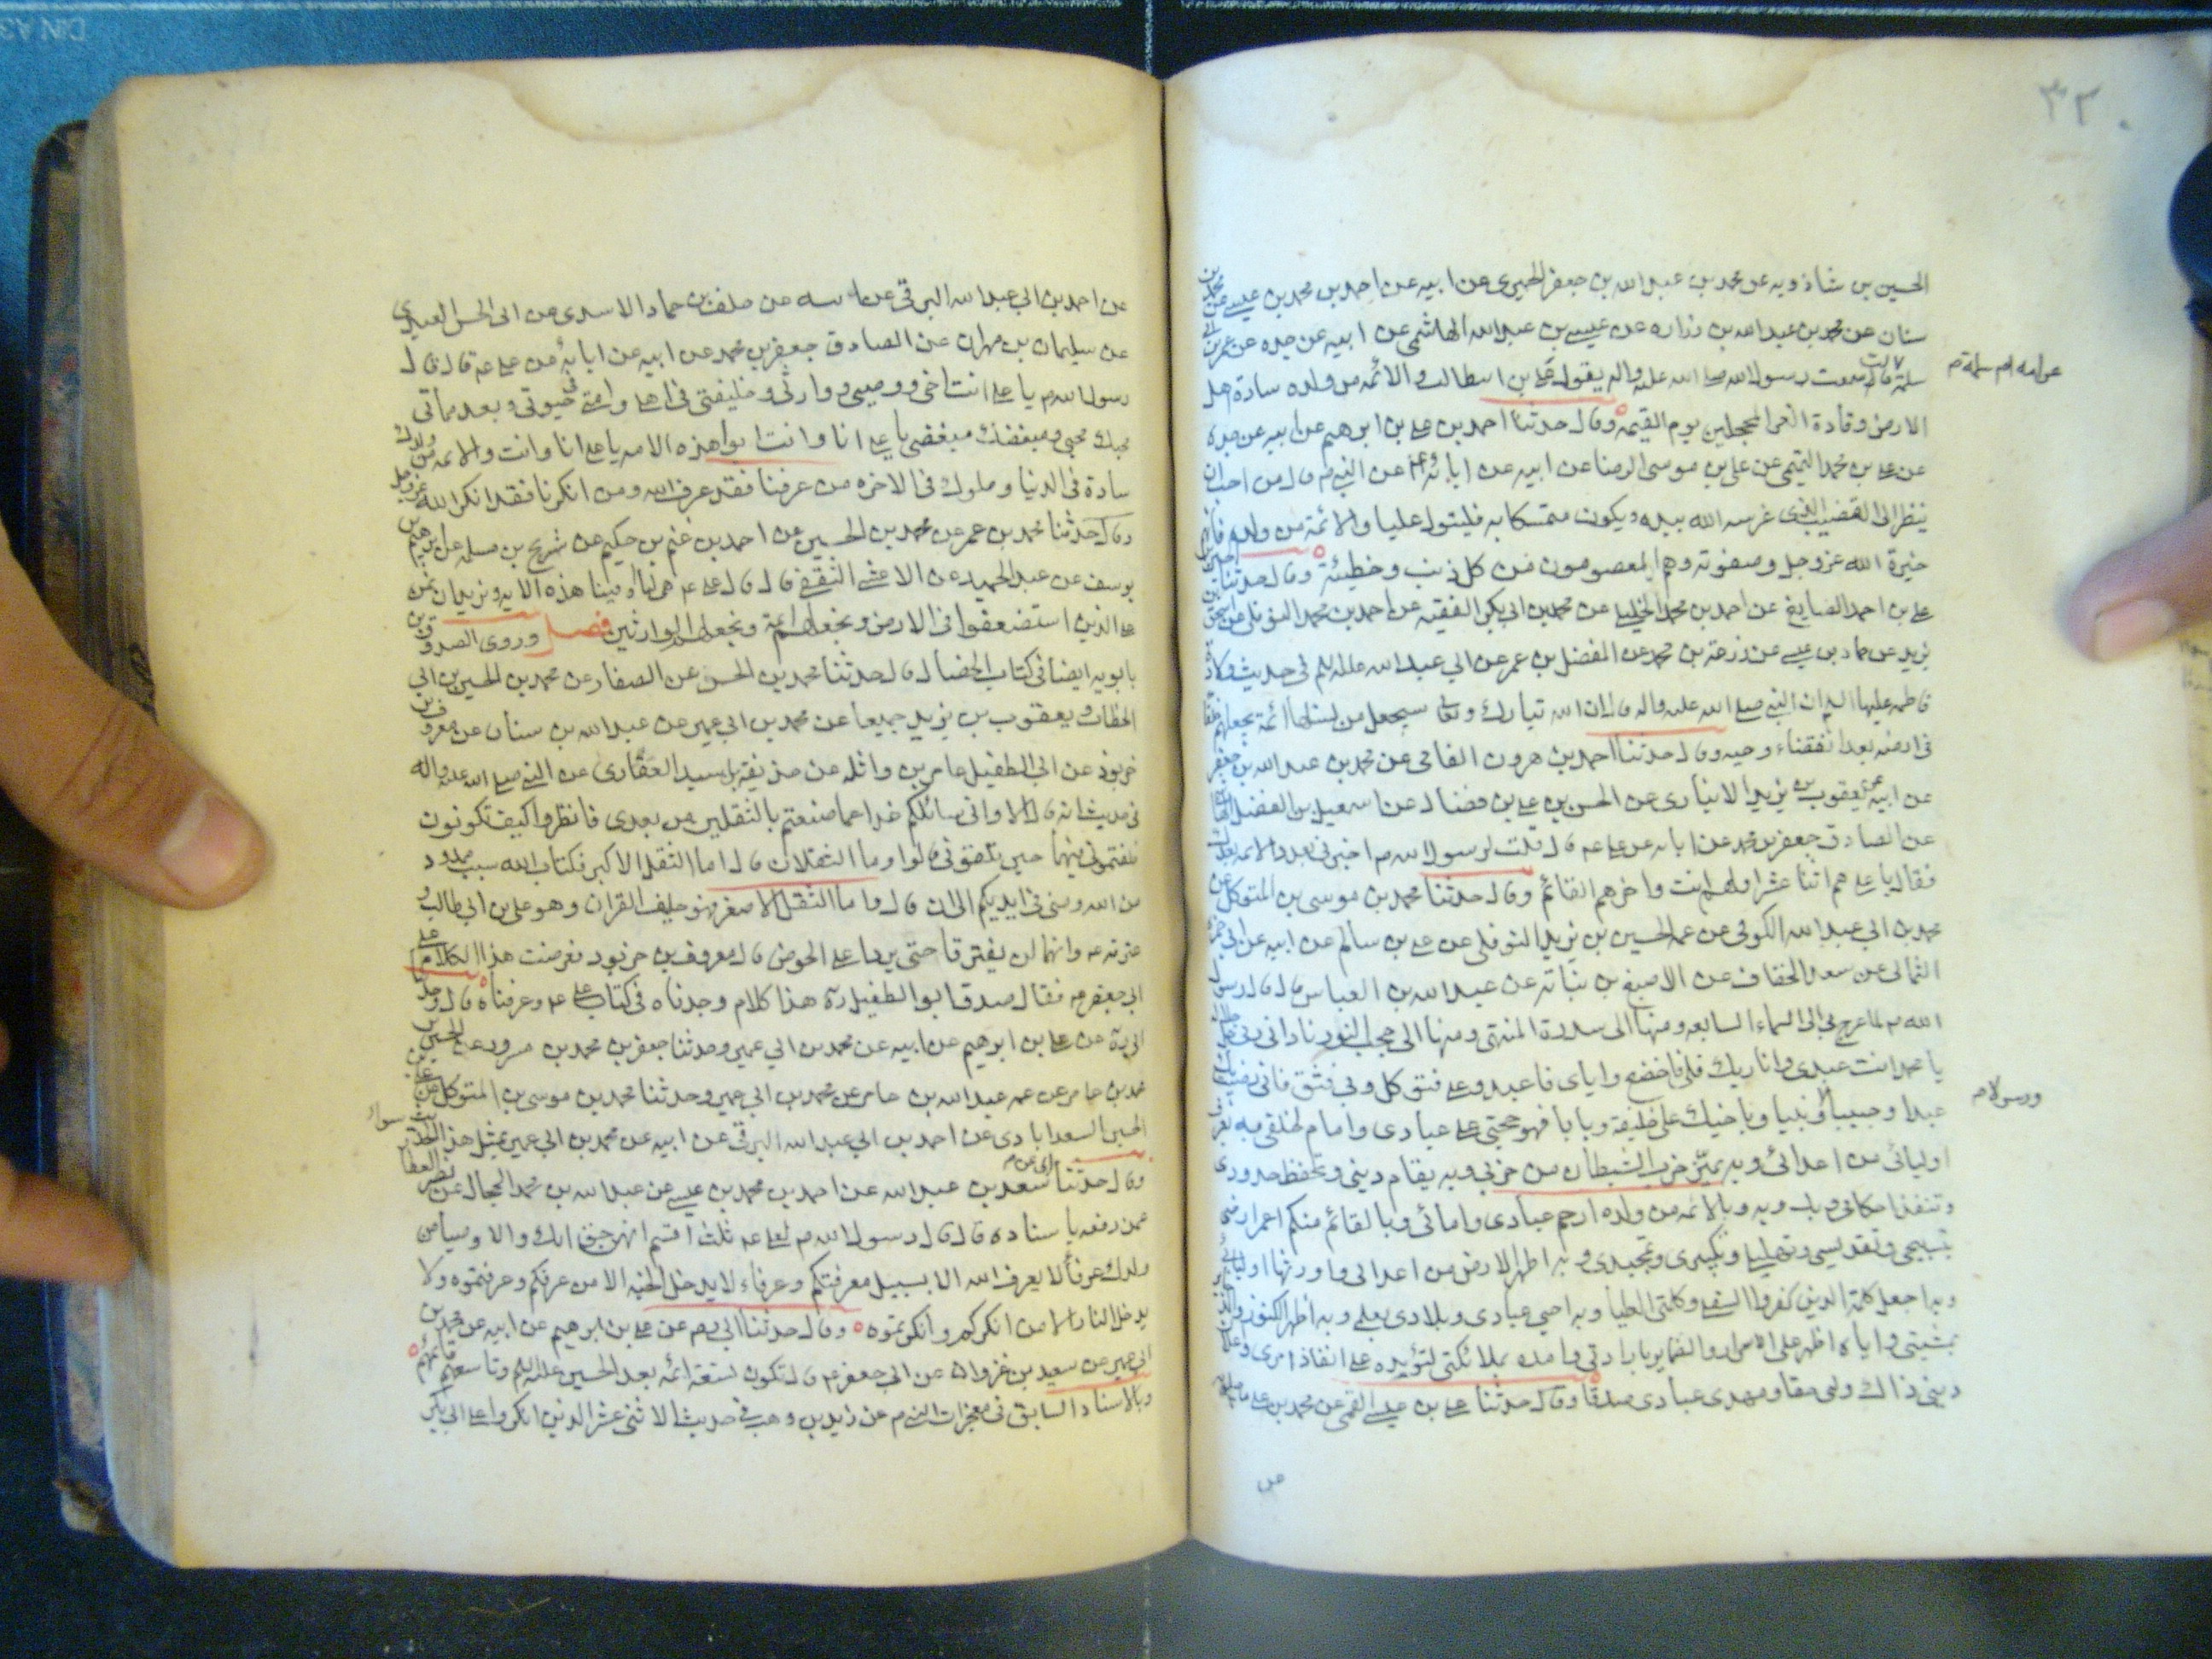 ٣٢٠
الحسين بن شاذويه عن محمد بن عبد الله بن جعفر الحميرى عن ابيه عن احمد بن محمد بن عيسى عن محمد بن
سنان عن محمد بن عبد الله بن زراره عن عيسى بن عبد الله الهاشمى عن ابيه عن جده عن عمر بن ابى
سلمة قالت سمعت رسول الله صلى الله عليه واله يقول على بن ابيطالب والائمه من ولده سادة اهل
عن امه ام سلمة
الارض وقادة الغر المحجلين يوم القيمه وقال حدثنا احمد بن على بن ابرهيم عن ابيه عن جده
عن على بن محمد التميمى عن على بن موسى الرضا عن ابيه عن ابائه عن النبى م قال من احب ان
ينظر الى القضيب الذى غرسه الله بيده ويكون متمسكا به فليتول عليا والائمة من ولده فانهم
خيرة الله عز وجل وصفوته وهم المعصومون من كل ذنب وخطيئة وقال حدثنا
على بن احمد الصايغ عن احمد بن محمد الخليلى عن محمد بن ابى بكر الفقيه عن احمد بن محمد النوفلى عن اسحق بن
يزيد عن حماد بن عيسى عن زرعة بن محمد عن المفضل بن عمر عن ابى عبد الله عليه السلم فى حديث ولادة
فاطمه عليها السلم ان النبى صلى الله عليه واله قال ان الله تبارك وتعالى سيجعل من نسلها ائمة يجعلهم خلفا
فى ارضه بعد انقضاء وحيه وقال حدثنا احمد بن هرون الفامى عن محمد بن عبد الله بن جعفر
عن ابيه عن يعقوب بن يزيد الانبارى عن الحسن بن على بن فضال عن اسمعيل بن الفضل الهاشمى
عن الصادق جعفر بن محمد عن ابائه عن على عه قال قلت لرسول الله م اخبرنى بعدد الائمه بعدك
فقال يا على هم اثنا عشر اولهم انت واخرهم القائم وقال حدثنا محمد بن موسى بن المتوكل عن
محمد بن ابى عبد الله الكوفى عن عمه الحسين بن يزيد النوفلى عن على بن سالم عن ابيه عن ابى حمزه
الثمالى عن سعد الخفاف عن الاصبغ بن نباته عن عبد الله بن العباس قال قال رسول
الله م لما عرج بى الى السماء السابعه ومنها الى سدرة المنتهى ومنها الى حجب النور نادانى ربى جل جلاله
يا محمد انت عبدى وانا ربك فلى فاخضع واياى فاعبد وعلى فتوكل وبى فثق فانى رضيت بك
عبدا وحبيبا ونبيا وباخيك على خليفة وبابا فهو حجتى على عبادى وامام لخلقى به يعرف
ورسولا م
اوليائى من اعدائى وبه يميز حزب الشيطان من حزبى وبه يقام دينى وتحفظ حدودى
وتنفذ احكامى وبك وبه وبالائمه من ولده ارحم عبادى وامائى وبالقائم منكم اعمر ارضى
بتسبيحى وتقديسى وتهليلى وتكبيرى وتمجيدى وبه اطهر الارض من اعدائى واورثها اوليائى
وبه اجعل كلمة الذين كفروا السفلى وكلمتى العليا وبه احيى عبادى وبلادى بعلمى وبه اظهر الكنوز والذخاير
بمشيتى واياه اظهر على الاسرار والضماير بارادتى وامده بملائكتى لتؤيده على انفاذ امرى واعلان
دينى ذاك وليى حقا ومهدى عبادى صدقا وقال حدثنا على بن عيسى القمى عن محمد بن على ماجيلويه
عن احمد بن ابى عبد الله البرقى عن ابيه عن خلف بن حماد الاسدى عن ابى الحسن العبدى
عن سليمان بن مهران عن الصادق جعفر بن محمد عن ابيه عن ابائه عن على عه قال قال
رسول الله م يا على انت اخى ووصيى ووارثى وخليفتى فى اهلى وامتى فى حيوتى وبعد مماتى
محبك محبى ومبغضك مبغضى يا على انا وانت ابوا هذه الامه يا على انا وانت والائمه من ولدك
سادة فى الدنيا وملوك فى الاخره من عرفنا فقد عرف الله ومن انكرنا فقد انكر الله عز وجل
وقال حدثنا محمد بن عمر عن محمد بن الحسين عن احمد بن غنم بن حكيم عن شريح بن مسلمه عن ابرهيم بن
يوسف عن عبد الحميد عن الاعشى الثقفى قال قال على عه هى لنا او فينا هذه الايه ونريد ان نمن
على الذين استضعفوا فى الارض ونجعلهم ائمة ونجعلهم الوارثين فصل وروى الصدوق بن
بابويه ايضا فى كتاب الخصال قال حدثنا محمد بن الحسن عن الصفار عن محمد بن الحسين بن ابى
الخطاب ويعقوب بن يزيد جميعا عن محمد بن ابى عمير عن عبد الله بن سنان عن معروف بن
خربوذ عن ابى الطفيل عامر بن واثله عن حذيفة بن اسيد الغفارى عن النبى صلى الله عليه واله
فى حديث انه قال الا وانى سائلكم غدا ما صنعتم بالثقلين من بعدى فانظروا كيف تكونون
خلفتمونى فيهما حين تلقونى قالوا وما الثقلان قال اما الثقل الاكبر فكتاب الله سبب ممدود
من الله ومنى فى ايديكم الى ان قال واما الثقل الاصغر فهو حليف القران وهو على بن ابى طالب و
عترته عه وانهما لن يفترقا حتى يردا على الحوض قال معروف بن خربود فعرضت هذا الكلام على
ابى جعفر عه فقال صدق ابو الطفيل ره هذا كلام وجدناه فى كتاب على عه وعرفناه قال وحدثنا
ابى ره عن على بن ابرهيم عن ابيه عن محمد بن ابى عمير وحدثنا جعفر بن محمد بن مسرور عن الحسين بن
محمد بن عامر عن عمه عبد الله بن عامر عن محمد بن ابى عمير وحدثنا محمد بن موسى بن المتوكل عن على بن
الحسين السعدابادى عن احمد بن ابى عبد الله البرقى عن ابيه عن محمد بن ابى عمير بمثل هذا الحديث سواء
وقال حدثنا سعد بن عبد الله عن احمد بن محمد بن عيسى عن عبد الله بن محمد الحجال عن نصر العطار
ابى عن م
عمن رفعه باسناده قال قال رسول الله م لعلى عه ثلث اقسم انهن حق انك والاوصياء من
ولدك عرفاء لا يعرف الله الا بسبيل معرفتكم وعرفاء لا يدخل الجنه الا من عرفكم وعرفتموه ولا
يدخل النار الا من انكركم وانكرتموه وقال حدثنا ابى رحم عن على بن ابرهيم عن ابيه عن محمد بن
ابى عمير عن سعيد بن غزوان عن ابى جعفر عه قال تكون تسعة ائمه بعد الحسين عليه السلم وتاسعهم قائمهم
وبالاسناد السابق فى معجزات النبى م عن زيد بن وهب فى حديث الاثنى عشر الذين انكروا على ابى بكر